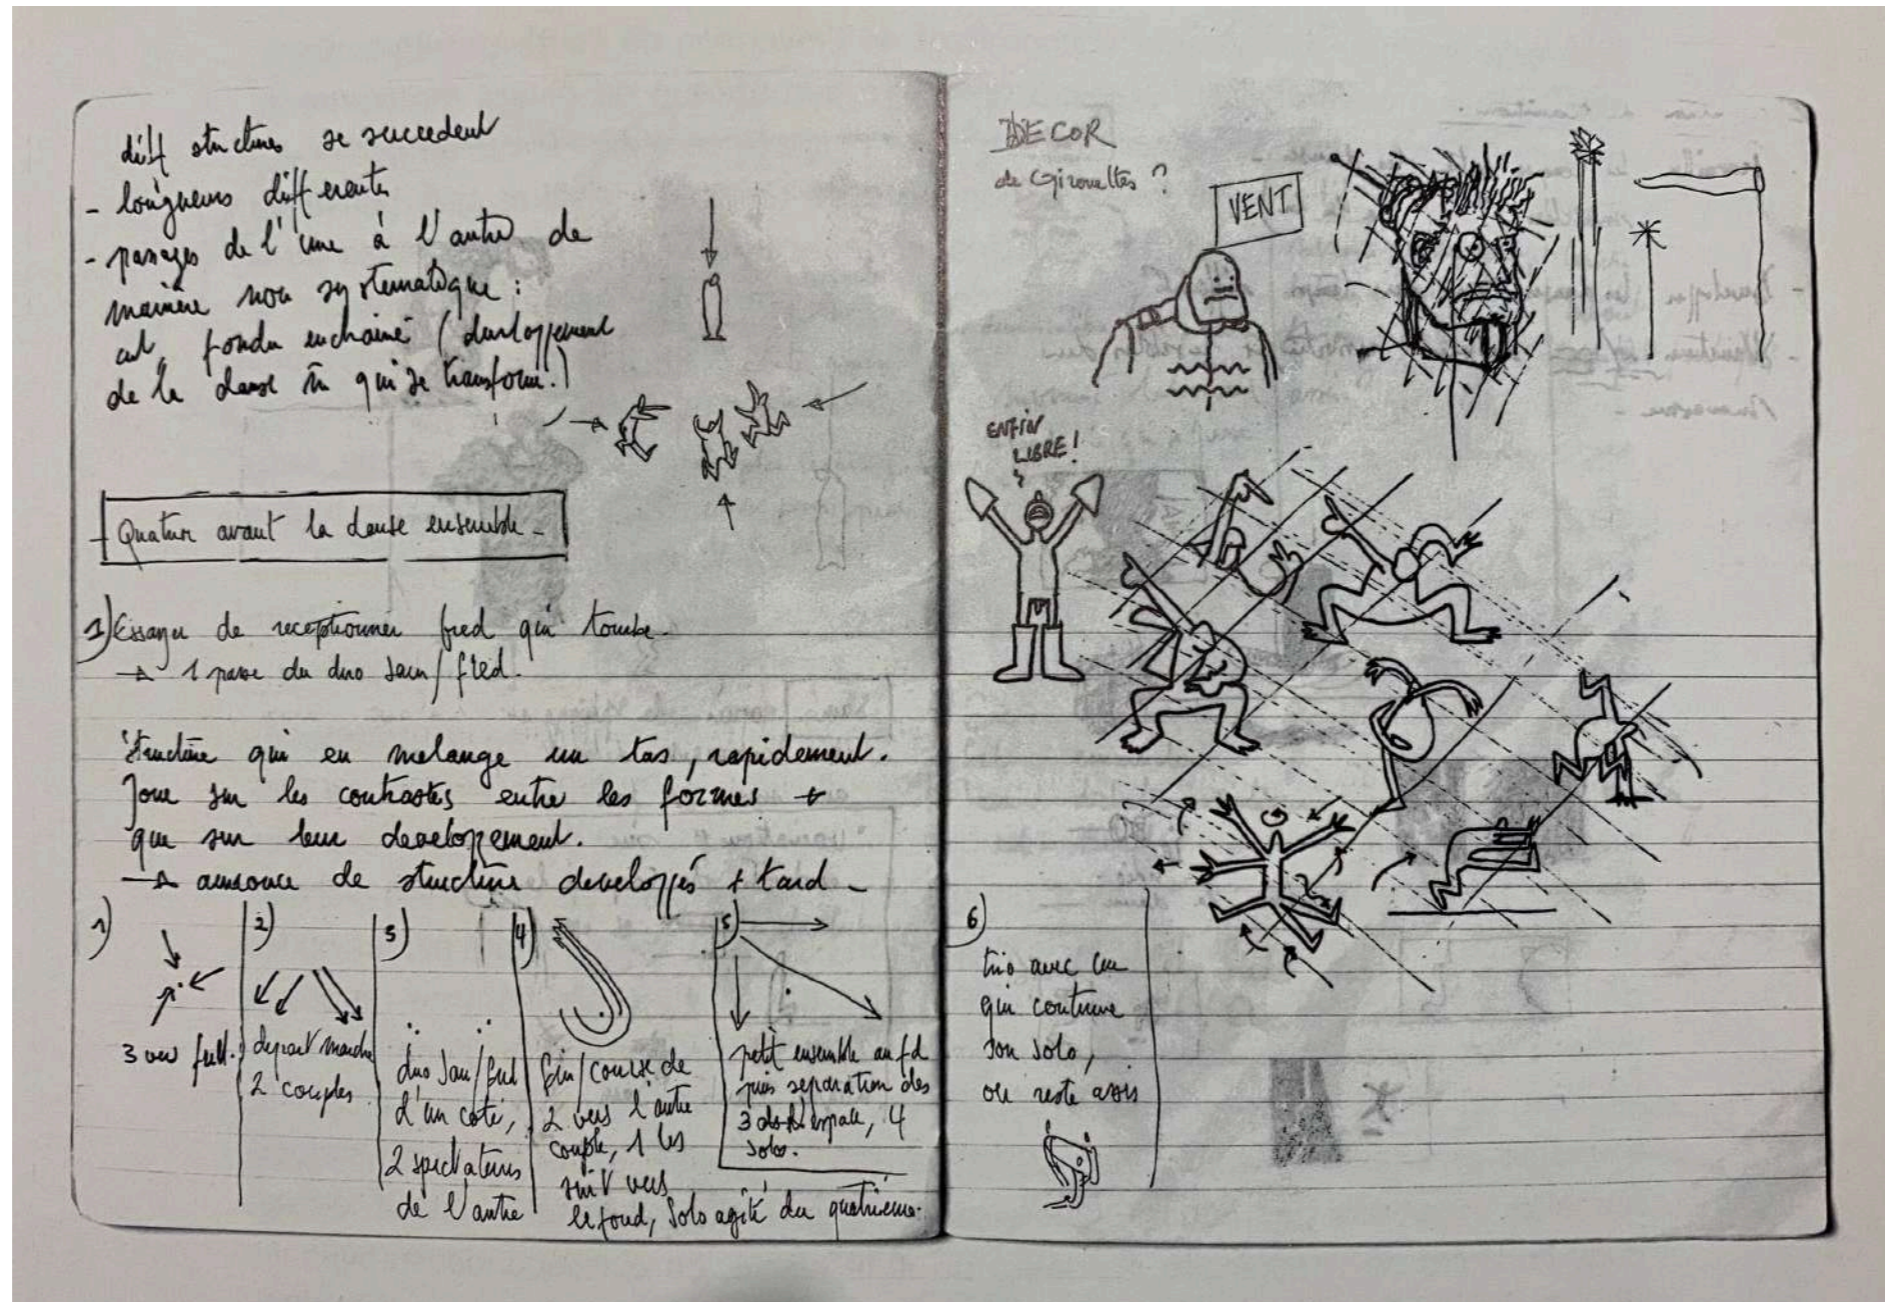 diff structures se succedent
- longueurs differentes
- passages de l'une à l'autre de
manière non systematique :
cut, fondu enchainé (developpement
de la danse qui se transforme.)
- Quatuor avant la danse ensemble -
1) Essayer de receptionner fred qui tombe.
→ 1 passe du duo Sam/fred.
structure qui en melange un tas, rapidement.
Joue sur les contrastes entre les formes +
que sur leur developement.
→ annonce de structure developpés + tard -
1)
3 vers
2)
depart marche
2 couples
3)
duo Sam/fred
d'un coté,
2 spectateurs
de l'autre
4)
fin/course de
2 vers l'autre
couple, 1 les
suit vers
le fond, Solo agité du quatrieme.
5)
petit ensemble au fd
puis separation des
3 ds l'espace, 4
solos.
DECOR
de Girouettes ?
VENT
ENFIN
LIBRE!
6)
trio avec un
qui continue
son solo,
ou reste assis